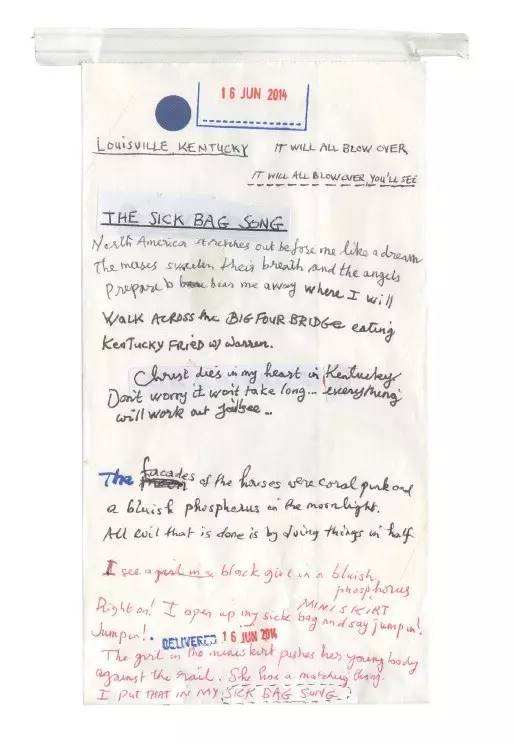 16 JUN 2014
LOUISVILLE, KENTUCKY IT WILL ALL BLOW OVER,
IT WILL ALL BLOW OVER, YOU'LL SEE
THE SICK BAG SONG
North America stretches out before me like a dream
The muses their breath and the angels
Prepare to bear me away where I will
WALK ACROSS the BIG FOUR BRIDGE eating
KENTUCKY FRIED w/ Warren.
Christ dies in my heart in Kentucky.
Don't worry it won't take long... everything
will work out you'll see..
The facades of the houses were coral pink and
a bluish phosphorus in the moonlight.
All evil that is done is by doing things in half
I see a girl in a black girl in a bluish
phosphorus
MINISKIRT
Right on! I open up my sick bag and say jump in!
Jump in!. DELIVERED 16 JUN 2014
The girl in the miniskirt pushes her young body
against the rail. She has a matching thong.
I PUT THAT IN MY SICK BAG SONG.